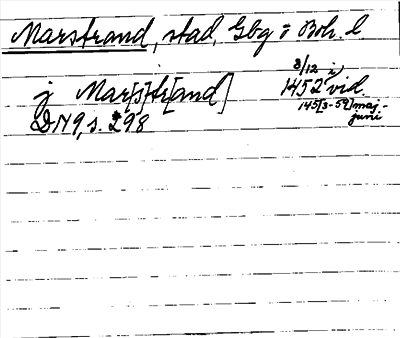 Marstrand, stad, Gbg o Boh. l
j Mar[s]t[r]and] 8/12 i 1452 vid. 145[3-59] maj-juni
DN 9, s. 298